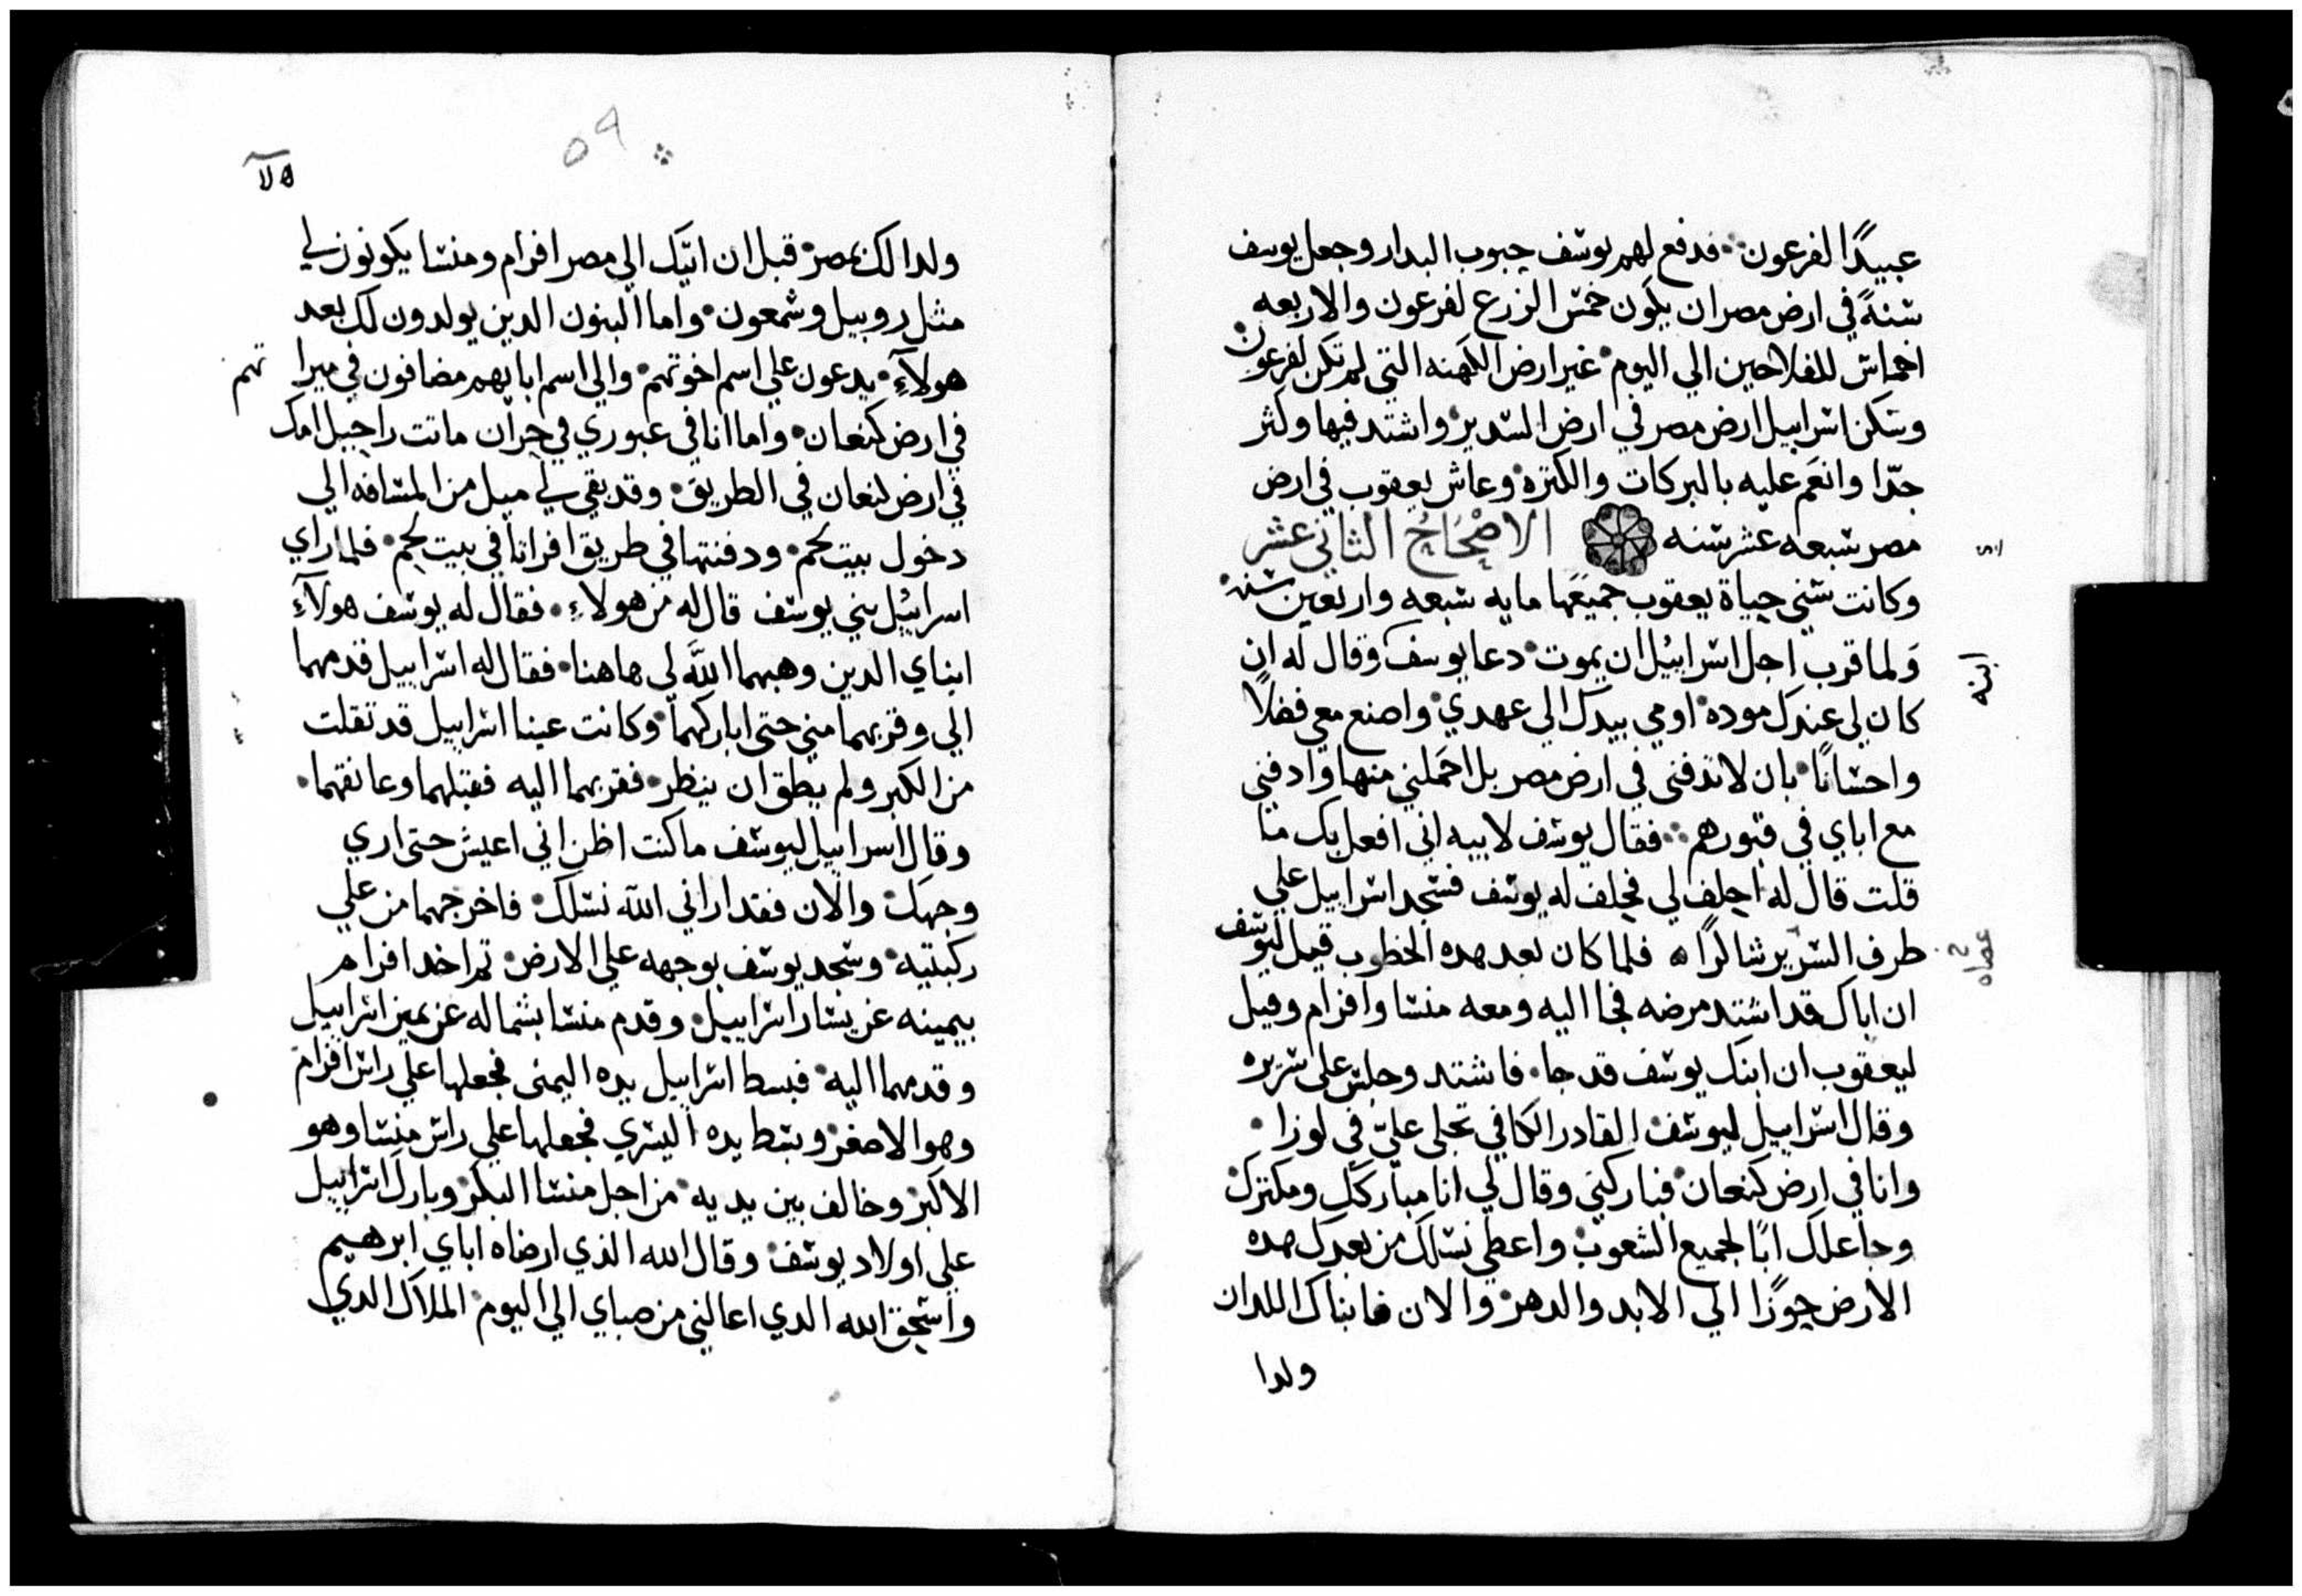 عبيدًا لفرعون فدفع لهم يوسف حبوب البدار وجعل يوسف
سنةً في ارض مصر ان يكون خمس الزرع لفرعون والاربعه
اخماس للفلاحين الي اليوم غير ارض الكهنه التي لم تكن لفرعون
وسكن اسراييل ارض مصر في ارض السدير واشتد فيها وكثر
جدّا وانعَم عليه بالبركات والكتره وعاش يعقوب في ارض
مصر سبعه عشر سنه الاصْحَاحُ الثاني عشر
وكانت سني حياة يعقوب جميعَها مايه سبعه واربعين سنه
وَلما قرب اجل اسراييُل ان يموت دعا يوسف وقال له ان
ابنه
كان لي عندك موده اومي بيدك الي عهدي واصنع معي فضلًا
واحسانًا بان لا تدفني في ارض مصر بل احَملني منها وادفني
مع اباي في قبورهم فقال يوسف لابيه اني افعل بك ما
قلت قال له احلف لي فحلف له يوسف فسجد اسراييل علي
طرف السرير شاكرًا ه فلما كان بعد هده الخطوب قيل ليوسف
عصاه
ان اباك قد اشتد مرضه فجا اليه ومعه منسا وافرام وقيل
ليعقوب ان ابنك يوسف قد جا فاشتد وجلس علي سريره
وقال اسراييل ليوسف القادر الكافي تجلي عليّ في لوزا
وانا في ارض كنعان فباركني وقال لي انا مباركك ومكترك
وجاعلك ابًا لجميع الشعوب واعطي نسلك من بعدك هده
الارض حوزًا الي الابد والدهر والان فابناك اللدان
ولدا
٥٩
ولدا لك بمصر قبل ان اتيك الي مصر افرام ومنسا يكونون لي
مثل روبيل وشمعون واما البنون الدين يولدون لك بعد
هولآءِ يدعون علي اسم اخوتهم والي اسم ابايهم مضافون في ميراتهم
في ارض كنعان واما انا في عبوري في حرّان ماتت راحيل امك
في ارض كنعان في الطريق وقد بقي لي ميل من المسافه الي
دخول بيت لحم ودفنتها في طريق افراتا في بيت لحم فلما راي
اسراييُل بني يوسف قال له من هولاءِ فقال له يوسف هولآءِ
ابناي الدين وهبهما اللَّه لي هاهنا فقال له اسراييل قدمهما
الي وقربهما مني حتي اباركهما وكانت عينا اسراييل قد تقلت
من الكبر ولم يطق ان ينظر فقربهما اليه فقبلهما وعانقهما
وقال اسراييل ليوسف ما كنت اظن اني اعيش حتي اري
وجهك والان فقد اراني اللّه نسلك فاخرجهما من علي
ركبتيه وسجد يوسف بوجهه علي الارض تم اخد افرام
بيمينه عن يسار اسراييل وقدم منسا بشماله عن يمين اسراييل
وقدمهما اليه فبسط اسراييل يده اليمني فجعلها علي راس افرام
وهو الاصغر وبسط يده اليسري فجعلها علي راس منسا وهو
الاكبر وخالف بين يديه من اجل منسا البكر وبارك اسراييل
علي اولاد يوسف وقال الله الذي ارضاه اباي ابرهيم
واسحق الله الدي اعالني من صباي الي اليوم الملاك الدي